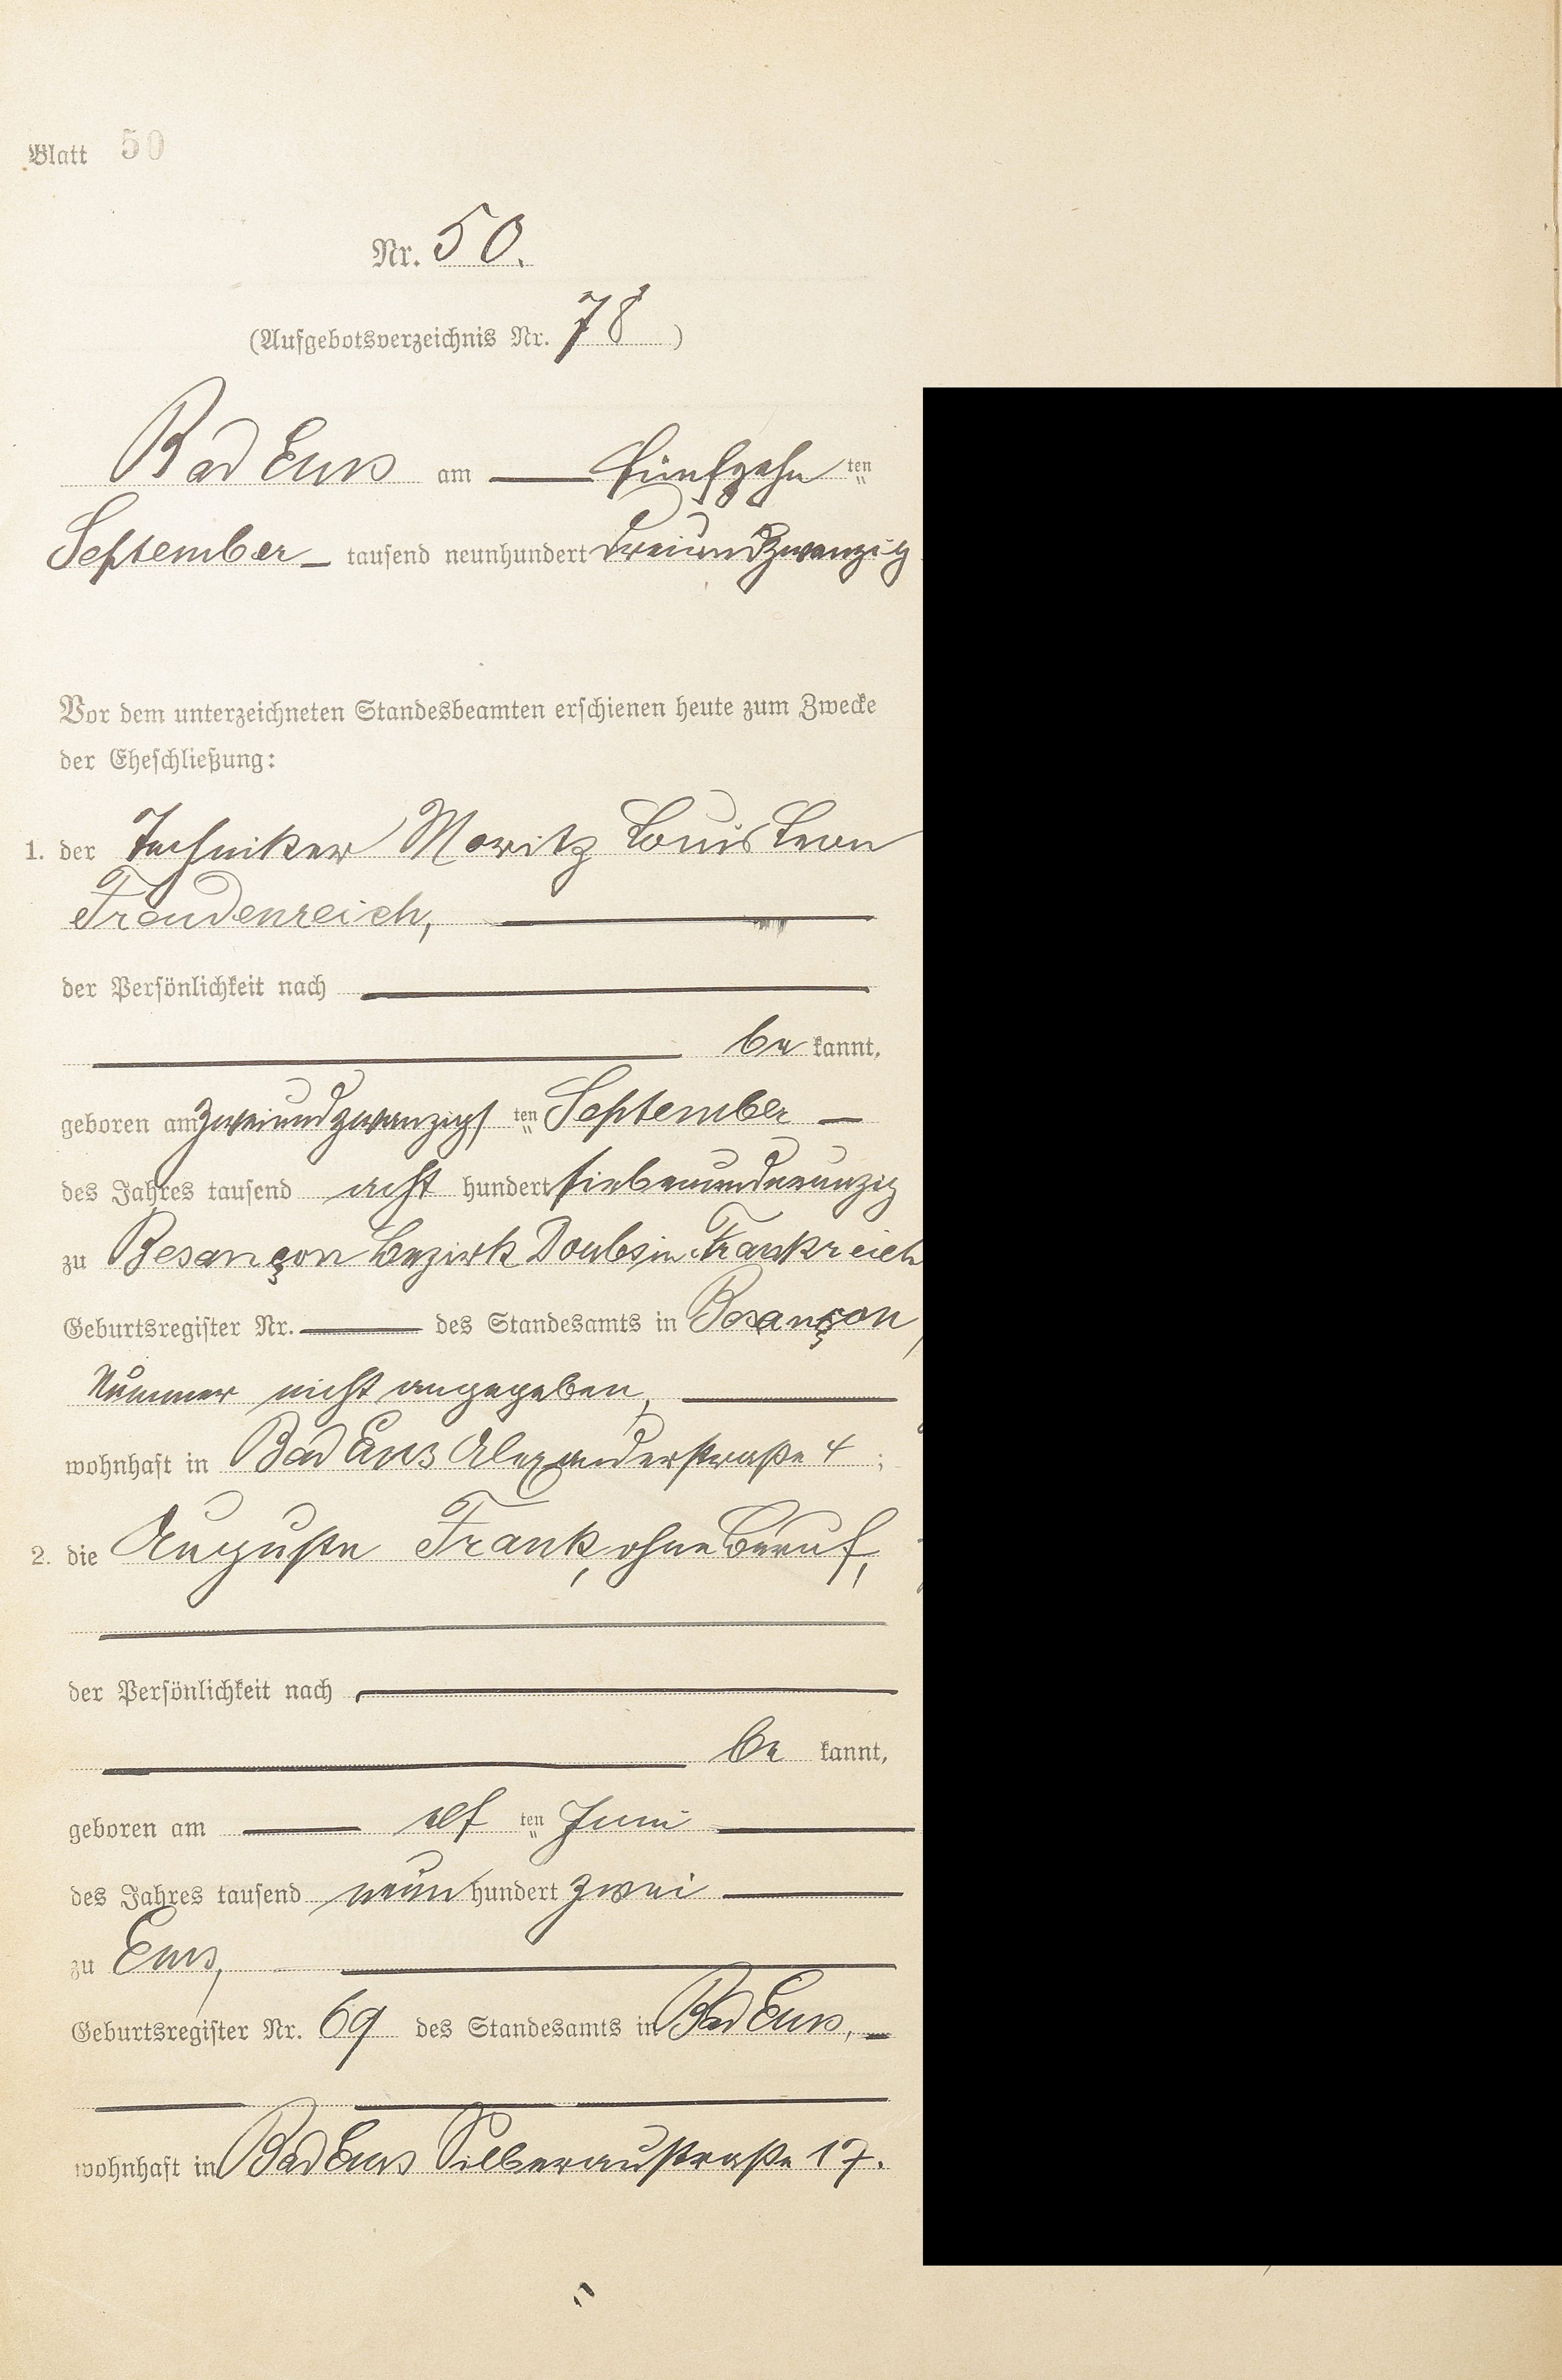 Blatt 50
Nr. 50.
(Aufgebotsverzeichnis Nr. 78)
Bad Ems am fünfzehn ten
September tausend neunhundert dreiundzwanzig
Vor dem unterzeichneten Standesbeamten erschienen heute zum Zwecke
der Eheschließung:
1. der Techniker Moritz Louis Leon
Freudenreich,
der Persönlichkeit nach
be kannt,
geboren am zweiundzwanzigs ten September
des Jahres tausend acht hundert siebenundneunzig
zu Besançon Bezirk Doubs in Frankreich
Geburtsregister Nr. des Standesamts in Besançon,
Nummer nicht angegeben,
wohnhaft in Bad Ems Alexanderstraße 4 ;
2. die Auguste Frank, ohne Beruf,
der Persönlichkeit nach
be kannt,
geboren am elf ten Juni
des Jahres tausend neun hundert zwei
zu Ems,
Geburtsregister Nr. 69 des Standesamts in Bad Ems,
wohnhaft in Bad Ems Silberaustraße 17.